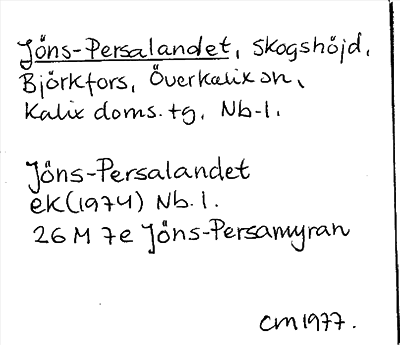 Jöns-Persalandet, skogshöjd,
Björkfors, Överkalix sn,
Kalix doms. tg, Nb-l.
Jöns-Persalandet
ek(1974) Nb. l.
26 M 7e Jöns-Persamyran
cm 1977.